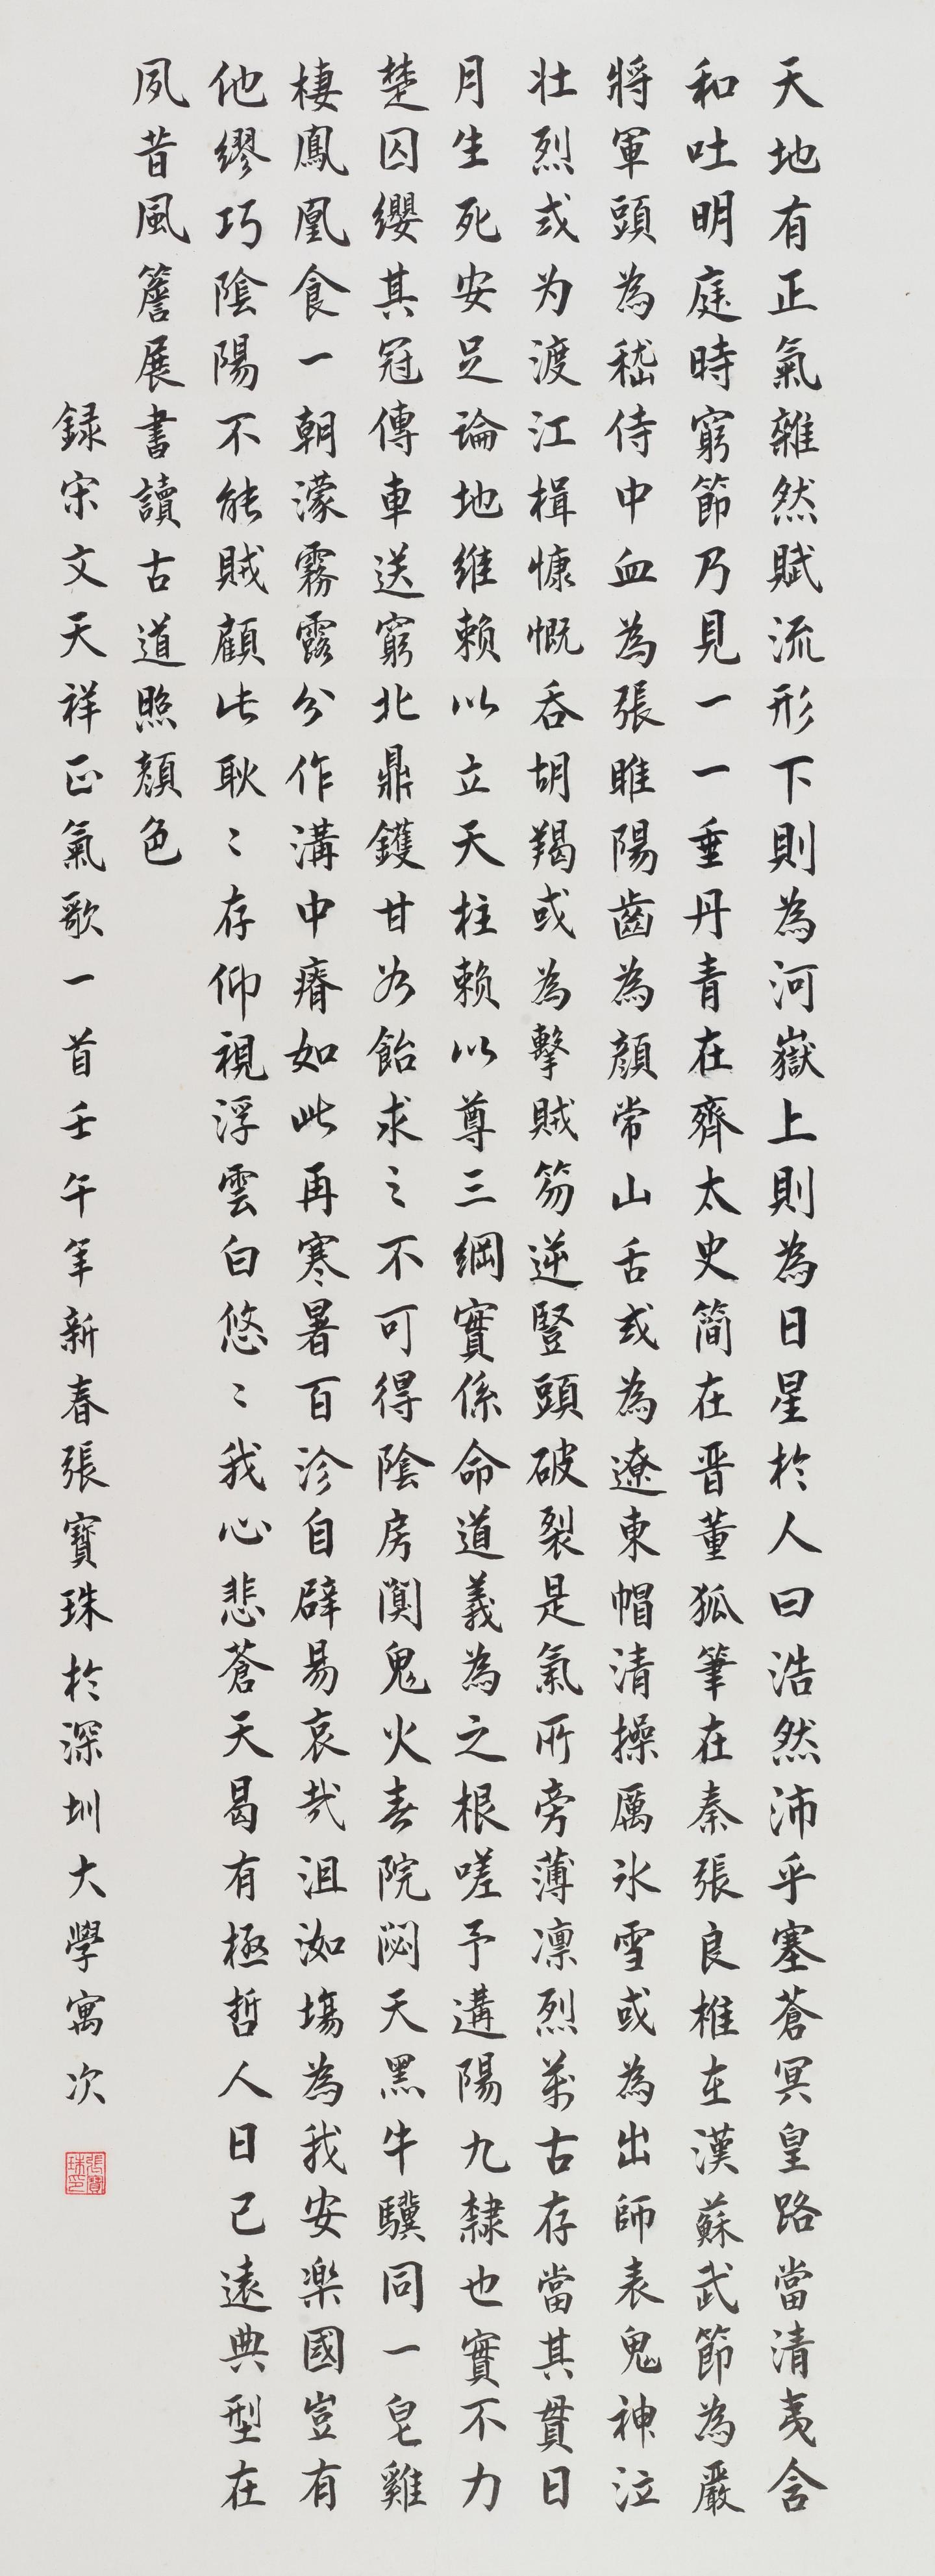 天地有正氣雜然賦流形下則為河嶽上則為日星於人曰浩然沛乎塞蒼冥皇路當清夷含
和吐明庭時窮節乃見一一垂丹青在齊太史簡在晋董狐筆在秦張良椎在漢蘇武節為嚴
將軍頭為嵇侍中血為張睢陽齒為顏常山舌或為遼東帽清操厲冰雪或為出師表鬼神泣
壯烈或为渡江楫慷慨吞胡羯或為擊賊笏逆豎頭破裂是氣所旁薄凛烈萬古存當其貫日
月生死安足論地維赖以立天柱赖以尊三綱實係命道義為之根嗟予遘陽九隸也實不力
楚囚纓其冠傳車送窮北鼎鑊甘如飴求之不可得陰房闃鬼火春院閟天黑牛驥同一皂雞
棲鳳凰食一朝濛霧露分作溝中瘠如此再寒暑百沴自辟易哀哉沮洳場為我安樂國豈有
他繆巧陰陽不能賊顧此耿〻存仰視浮雲白悠〻我心悲蒼天曷有極哲人日已遠典型在
夙昔風簷展書讀古道照顏色
録宋文天祥正氣歌一首壬午年新春張寶珠於深圳大學寓次
張寶珠印